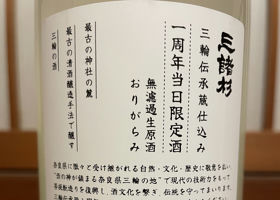 三諸杉
三輪伝承蔵仕込み
一周年当日限定酒
無濾過生原酒
おりがらみ
最古の神社の麓
最古の清酒醸造手法で醸す
三輪の酒
奈良県に脈々と受け継がれる自然・文化・歴史に敬意を払い、
"酒の神が鎮まる奈良県三輪の地"で現代の技術力をもって
伝統醸造を復興し、酒文化を繋ぎ、伝統を守ってまいります。